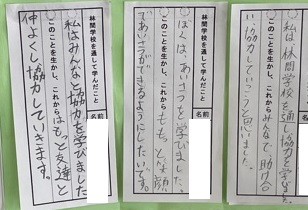 林間学校を通して学んだこと
名前
私はみんなと協力を学びました
このことを生かし、これからはもっと友達と
仲よくし協力していきます。
林間学校を通して学んだこと
名前
ぼくは、あいさつを学びました。
このことを生かし、これからももっと笑顔
であいさつができるようにしたいです。
林間学校を通して学んだこと
名前
私は林間学校を通し協力を学びました
このことを生かし、これからみんなで助け合
い協力していこうと思いました。